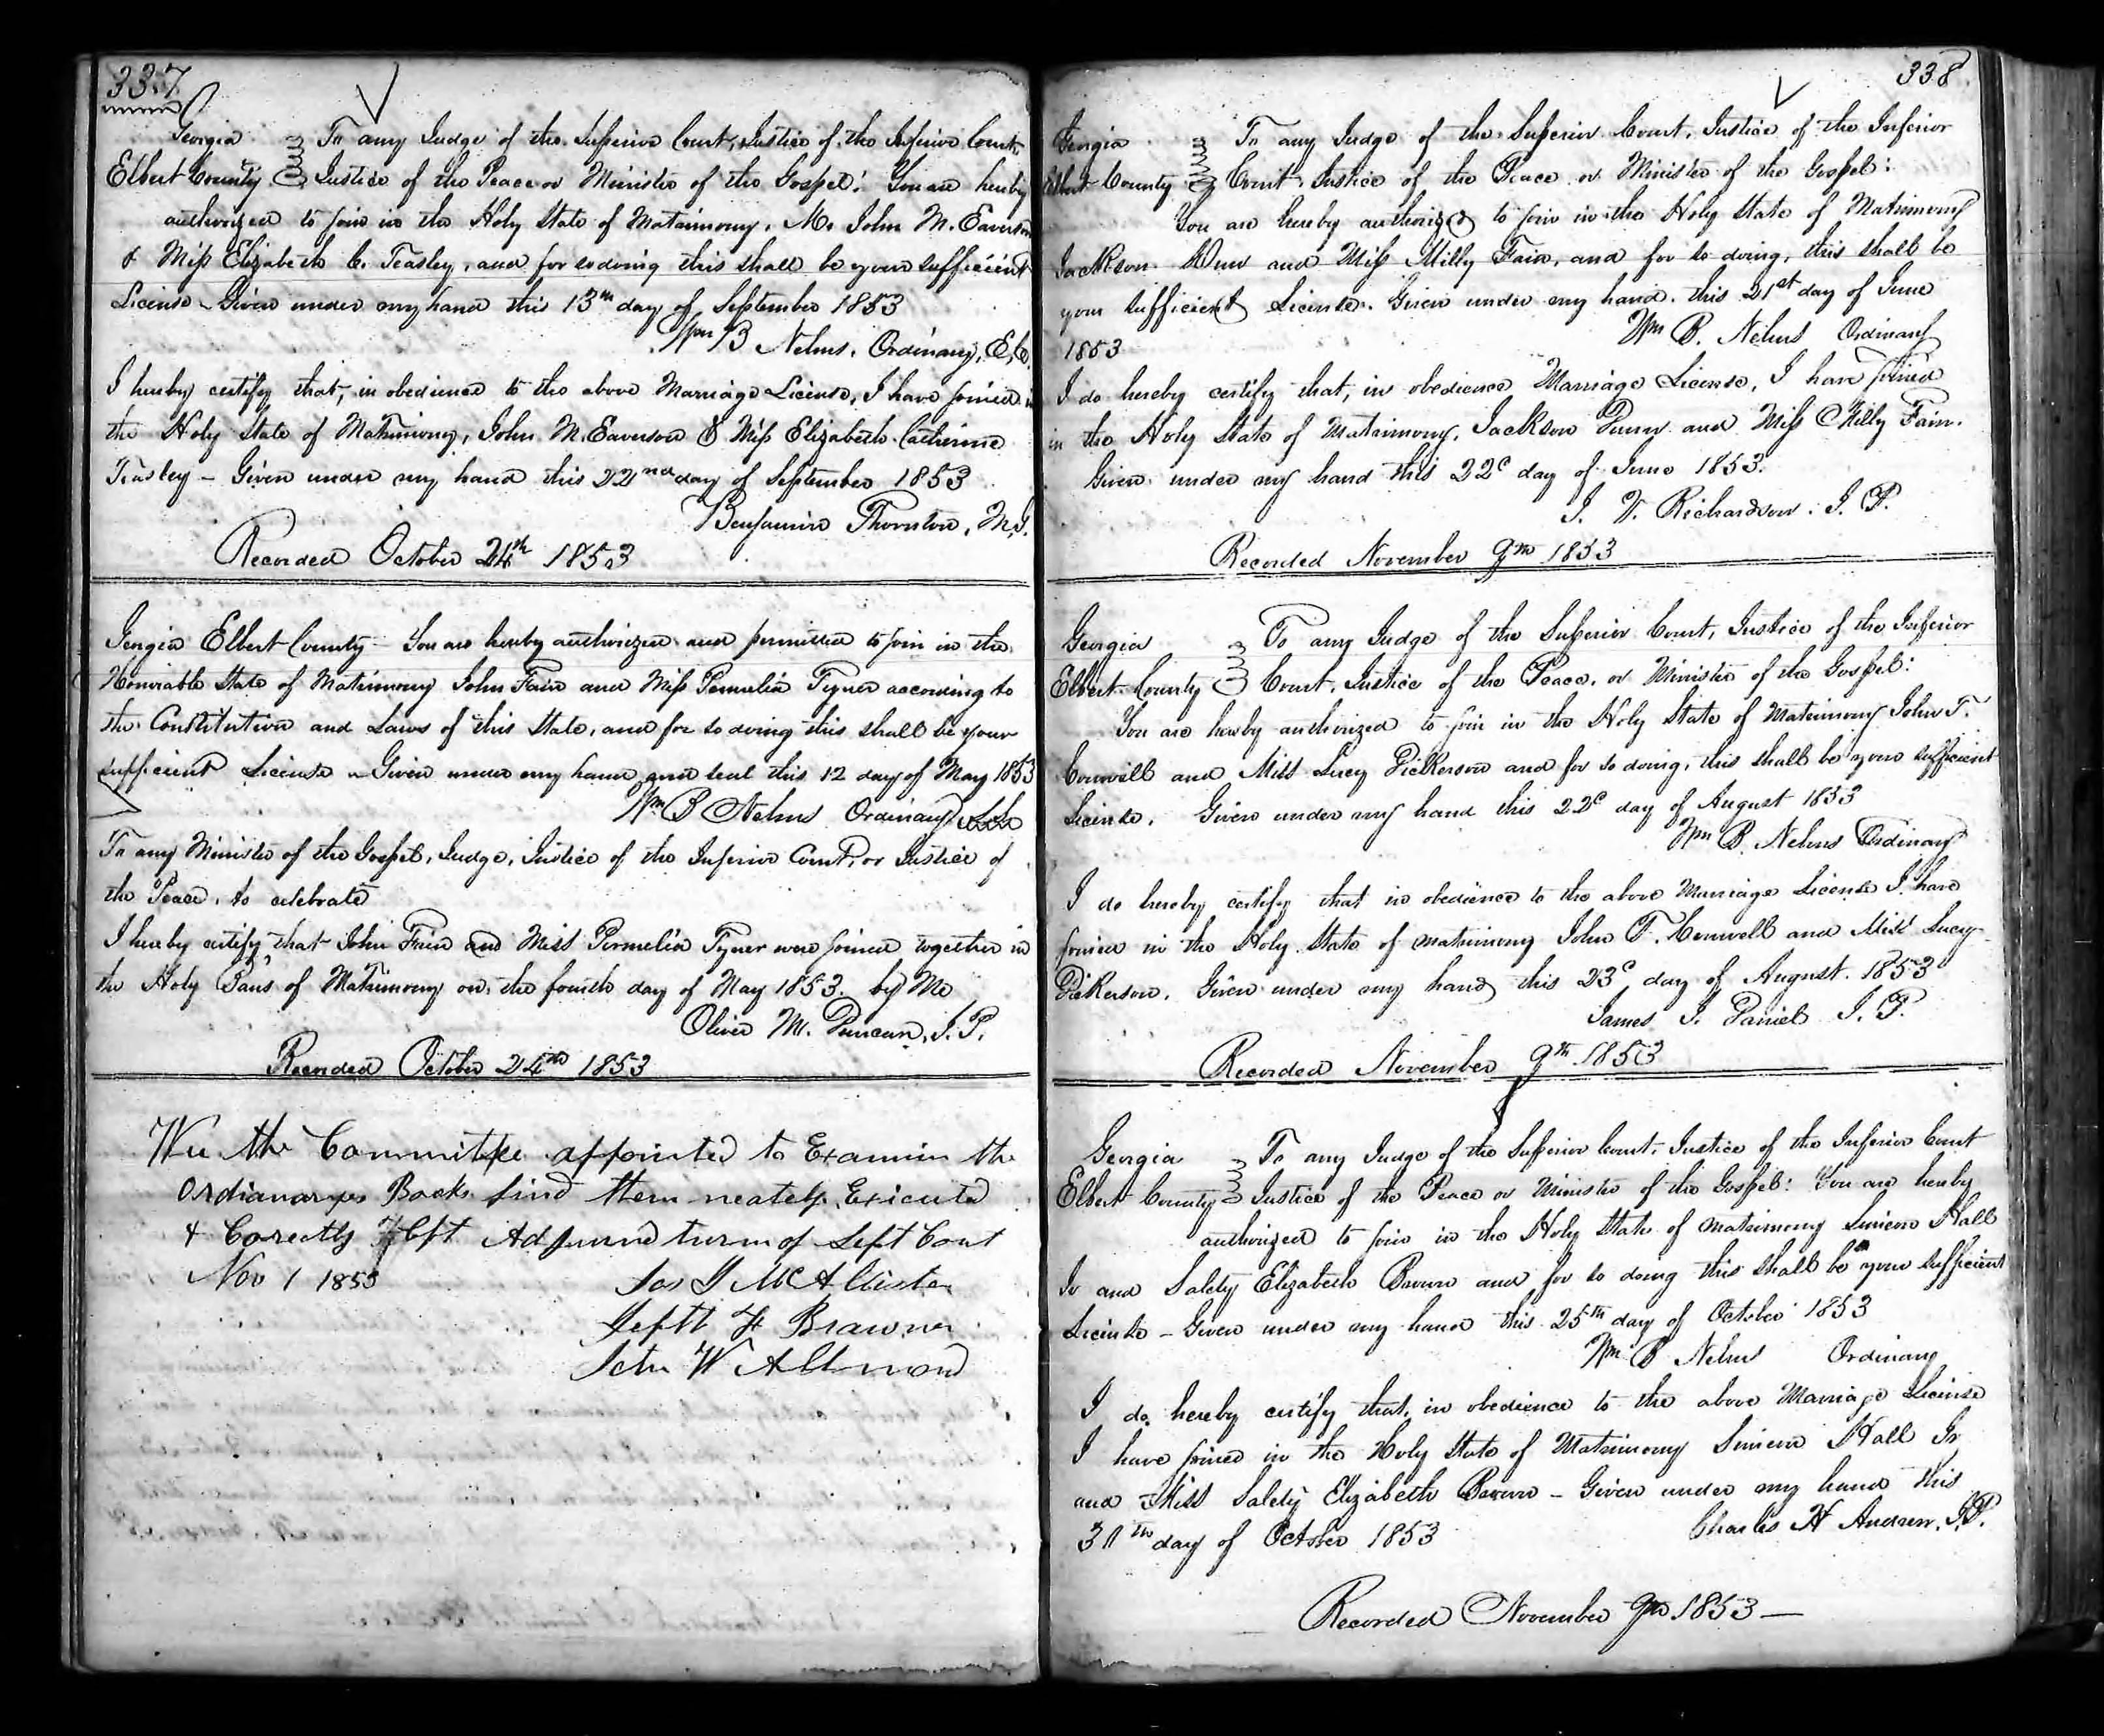 337
Georgia To any Judge of the Superior Court, Justice of the Inferior Court,
Elbert County Justice of the Peace or Minister of the Gospel: You are hereby
authorized to join in the Holy State of Matrimony, Mr John M. Eaverson
& Miss Elizabeth C. Teasley, and for so doing this shall be your sufficient
License – Given under my hand this 13th day of September 1853
Wm B Nelms, Ordinary, E.C.
I hereby certify that, in obedience to the above Marriage License, I have joined in
the Holy State of Matrimony, John M. Eaverson & Miss Elizabeth Catherine
Teasley – Given under my hand this 22nd day of September 1853
Benjamin Thornton, M.G.
Recorded October 24th 1853
Georgia Elbert County – You are hereby authorized and permitted to join in the
Honorable State of Matrimony John Fain and Miss Permelia Tyner according to
the Constitution and Laws of this State, and for so doing this shall be your
sufficient License – Given under my hand and seal this 12 day of May 1853
Wm B Nelms Ordinary
To any Minister of the Gospel, Judge, Justice of the Inferior Court, or Justice of
the Peace, to celebrate
I hereby certify, that John Fain and Miss Permelia Tyner were joined together in
the Holy Bans of Matrimony on the fourth day of May 1853. by Me
Oliver M. Duncan, J.P.
Recorded October 24th 1853
Wee the Committee appointed to Examin the
Ordianarys Books find them neately Executed
& Corectly Kept Adjourned turm of Sept Cort
Nov 1 1853 Jas J McAllister
Jeptt H Brawner
John W Allmond
338
Georgia To any Judge of the Superior Court, Justice of the Inferior
Elbert County Court, Justice of the Peace or Minister of the Gospel:
You are hereby authorized to join in the Holy State of Matrimony
Jackson Dunn and Miss Milly Fain, and for so doing, this shall be
your sufficient License. Given under my hand this 21st day of June
1853 Wm B. Nelms Ordinary
I do hereby certify that, in obedience Marriage License, I have joined
in the Holy State of Matrimony, Jackson Dunn and Miss Milly Fain.
Given under my hand this 22d day of June 1853.
J. V. Richardson. J. P.
Recorded November 9th 1853
Georgia To any Judge of the Superior Court, Justice of the Inferior
Elbert County Court, Justice of the Peace, or Minister of the Gospel:
You are hereby authorized to join in the Holy State of Matrimony John T.
Cornwell and Miss Lucy Dickerson and for so doing, this shall be your sufficient
License. Given under my hand this 22d day of August 1853
Wm B. Nelms Ordinary
I do hereby certify that in obedience to the above Marriage License I have
joined in the Holy State of matrimony John T. Cornwell and Miss Lucy
Dickerson. Given under my hand this 23d day of August. 1853
James J. Daniel J. P.
Recorded November 9th 1853
Georgia To any Judge of the Superior Court, Justice of the Inferior Court
Elbert County Justice of the Peace or Minister of the Gospel: You are hereby
authorized to join in the Holy State of matrimony Simeon Hall
Jr and Salety Elizabeth Brown and for so doing this shall be your sufficient
License – Given under my hand this 25th day of October 1853
Wm B Nelms Ordinary
I do hereby certify that, in obedience to the above Marriage License
I have joined in the Holy State of Matrimony Simeon Hall Jr
and Miss Salety Elizabeth Brown – Given under my hand this
30th day of October 1853 Charles H Andrew. J.P.
Recorded November 9th 1853 –